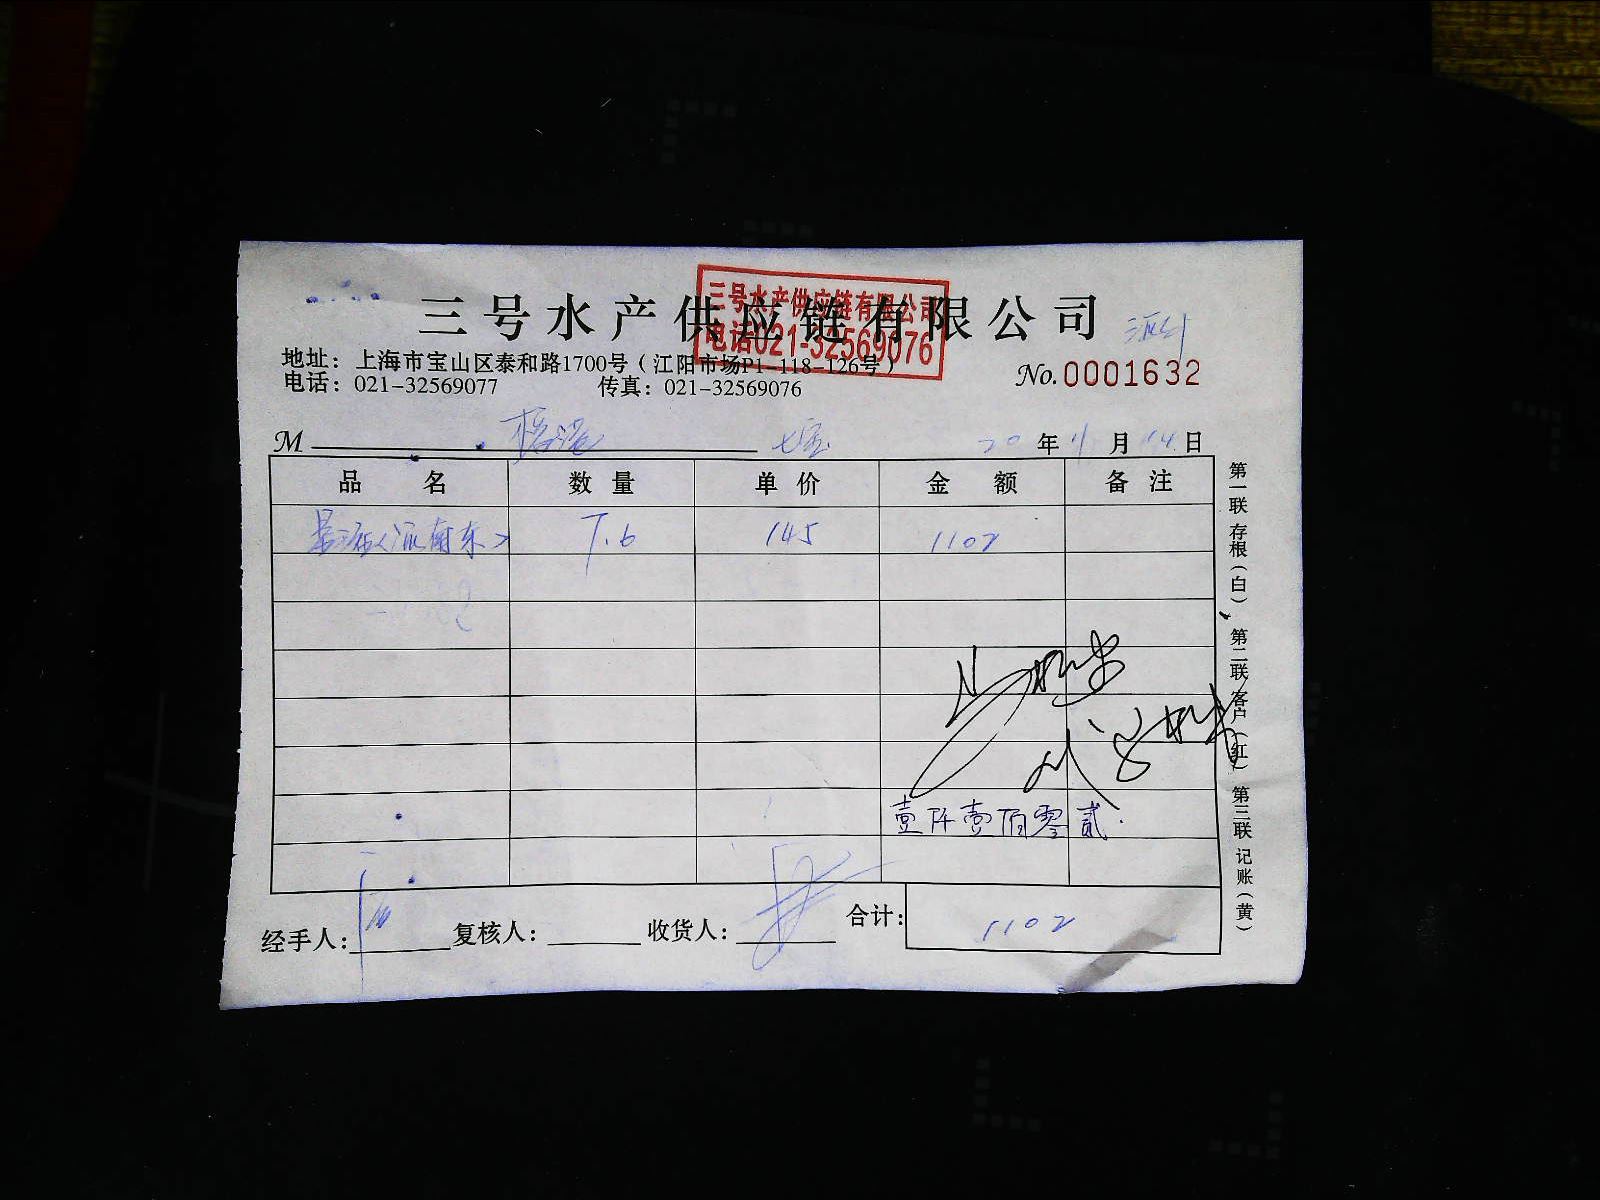 三号水产供应链有限公司
三号水产供应链有限公司
电话021-32569076
地址：上海市宝山区泰和路1700号（江阳市场P1-118-126号）
电话：021-32569077 传真：021-32569076
No.0001632
M 七宝 20年11月14日
品名 数量 单价 金额 备注
7.6 145 1102
壹仟壹佰零贰
经手人： 复核人： 收货人： 合计： 1102
第一联 存根（白） 第二联 客户（红） 第三联 记账（黄）